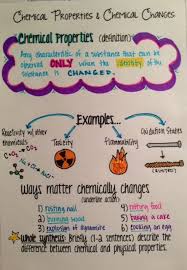 Chemical Properties & Chemical Changes
Chemical Properties (definition)
Any characteristic of a substance that can be
observed ONLY when the identity of the
substance is CHANGED.
Examples...
Reactivity w/ other chemicals
Toxicity
Flammability
Oxidation States
(RUSTING)
Ways matter chemically changes
(underline action)
1) rusting nail
2) burning wood
3) explosion of dynamite
4) rotting food
5) baking a cake
6) cooking an egg
Whole Synthesis: Briefly (1-2 sentences) describe the
difference between chemical and physical properties.